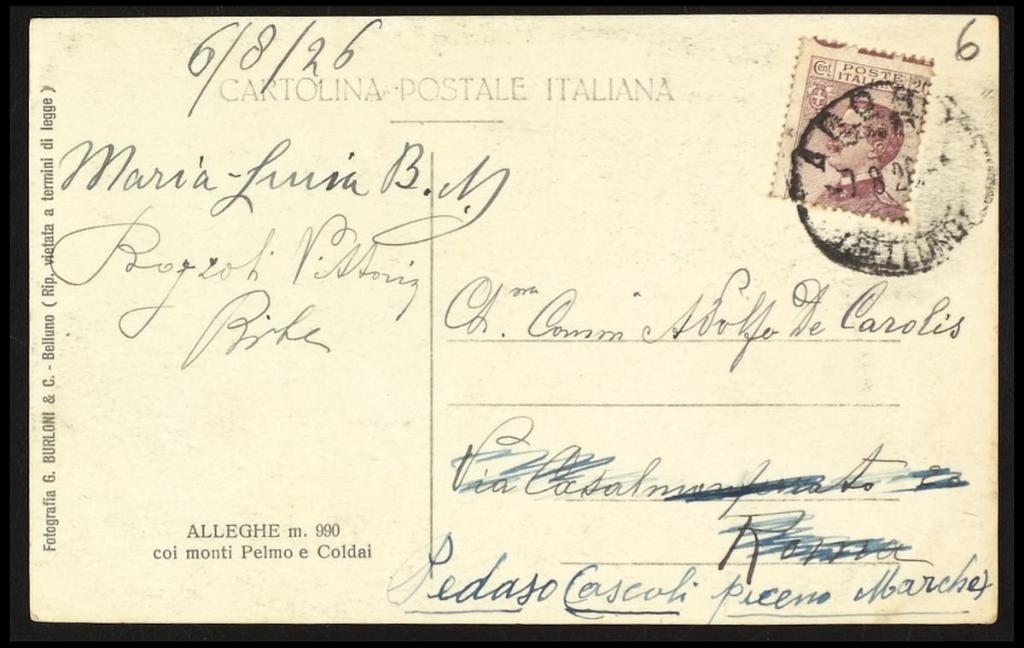 6/8/26
6
CARTOLINA POSTALE ITALIANA
Cent. POSTE 20
ITALIANE
7.8.26
BELLUNO
Maria-Luisa B. N.
Bozzoli Vittoria
Ch.mo Comm Adolfo De Carolis
Via Casalmonferrato
Roma
Pedaso (Ascoli piceno Marche)
ALLEGHE m. 990
coi monti Pelmo e Coldai
Fotografia G. BURLONI & C. - Belluno ( Rip. vietata a termini di legge )